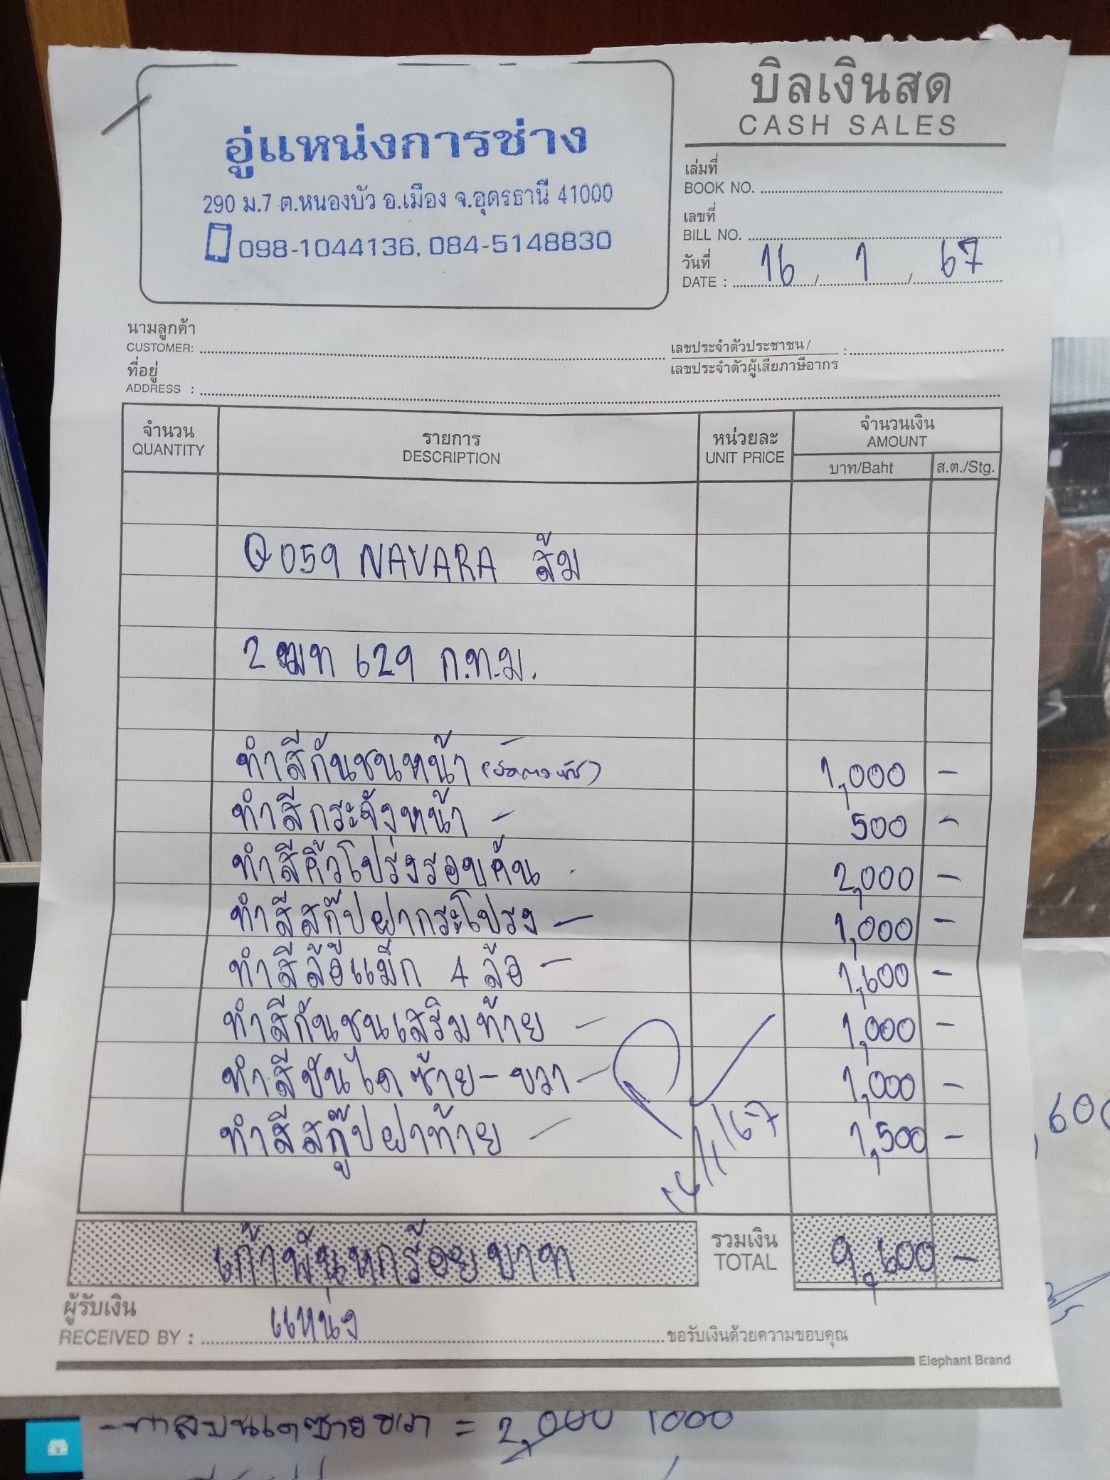 บิลเงินสด
CASH SALES
อู่แหน่งการช่าง
290 ม.7 ต.หนองบัว อ.เมือง จ.อุดรธานี 41000
098-1044136, 084-5148830
เล่มที่
BOOK NO.
เลขที่
BILL NO.
วันที่
DATE : 16 / 1 / 67
นามลูกค้า
CUSTOMER:
เลขประจำตัวประชาชน/
เลขประจำตัวผู้เสียภาษีอากร :
ที่อยู่
ADDRESS :
จำนวน รายการ หน่วยละ จำนวนเงิน
QUANTITY DESCRIPTION UNIT PRICE AMOUNT
บาท/Baht ส.ต./Stg.
Q059 NAVARA ส้ม
2ฒท 629 ก.ท.ม.
ทำสีกันชนหน้า 1,000 -
ทำสีกระจังหน้า - 500 -
ทำสีคิ้วโป่งรอบคัน 2,000 -
ทำสีสกู๊ปฝากระโปรง - 1,000 -
ทำสีล้อแม็ก 4 ล้อ - 1,600 -
ทำสีกันชนเสริมท้าย - 1,000 -
ทำสีบันไดซ้าย-ขวา - 1,000 -
ทำสีสกู๊ปฝาท้าย - 1,500 -
16/1/67
เก้าพันหกร้อยบาท รวมเงิน 9,600 -
TOTAL
ผู้รับเงิน
RECEIVED BY : แหน่ง ขอรับเงินด้วยความขอบคุณ
Elephant Brand
,600
-ทำสีบันไดซ้ายขวา = 2,000 1000